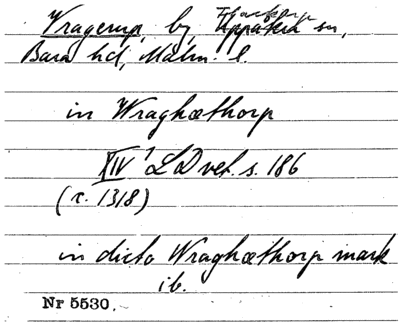 Vragerup, by, Flackarp sn,
Bara hd, Malm. l.
in Wraghæthorp
XIV 1 LDvet. s. 186
(c. 1318)
in dicto Wraghæthorp mark
ib.
Nr 5530.